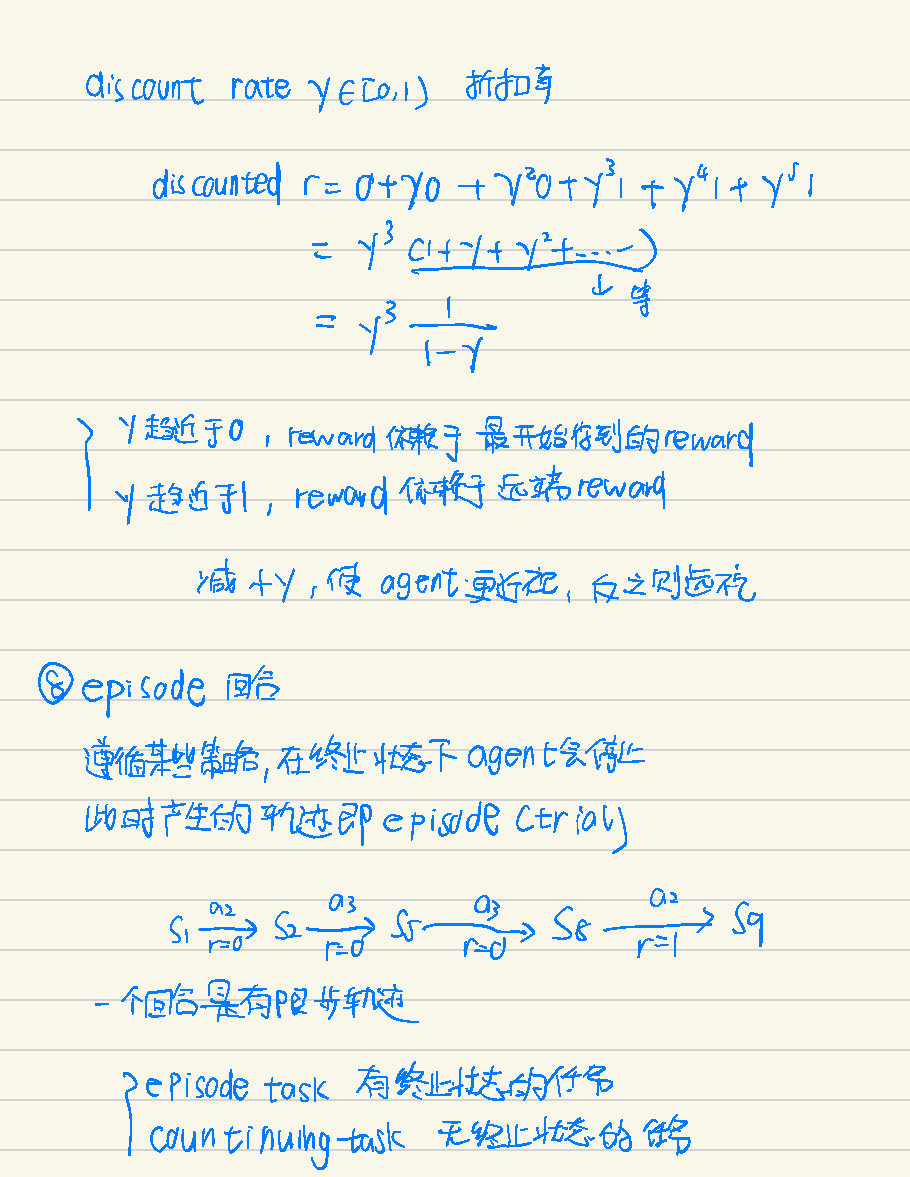 discount rate γ∈[0,1) 折扣率
discounted r = 0+γ0 + γ²0+γ³1 + γ⁴1 + γ⁵1
= γ³ (1+γ+γ²+……)
↓ 等
= γ³ 1/(1-γ)
γ趋近于0，reward依赖于最开始得到的reward
γ趋近于1，reward依赖于远端reward
减小γ，使agent更近视，反之则远视
⑧ episode 回合
遵循某些策略，在终止状态下agent会停止
此时产生的轨迹即episode (trial)
S₁ —a₂, r=0→ S₂ —a₃, r=0→ S₅ —a₃, r=0→ S₈ —a₂, r=1→ S₉
一个回合是有限步轨迹
episode task 有终止状态的任务
countinuing task 无终止状态的任务